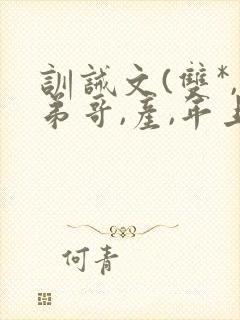 訓誡文(雙*,
弟哥,產,年上
何青